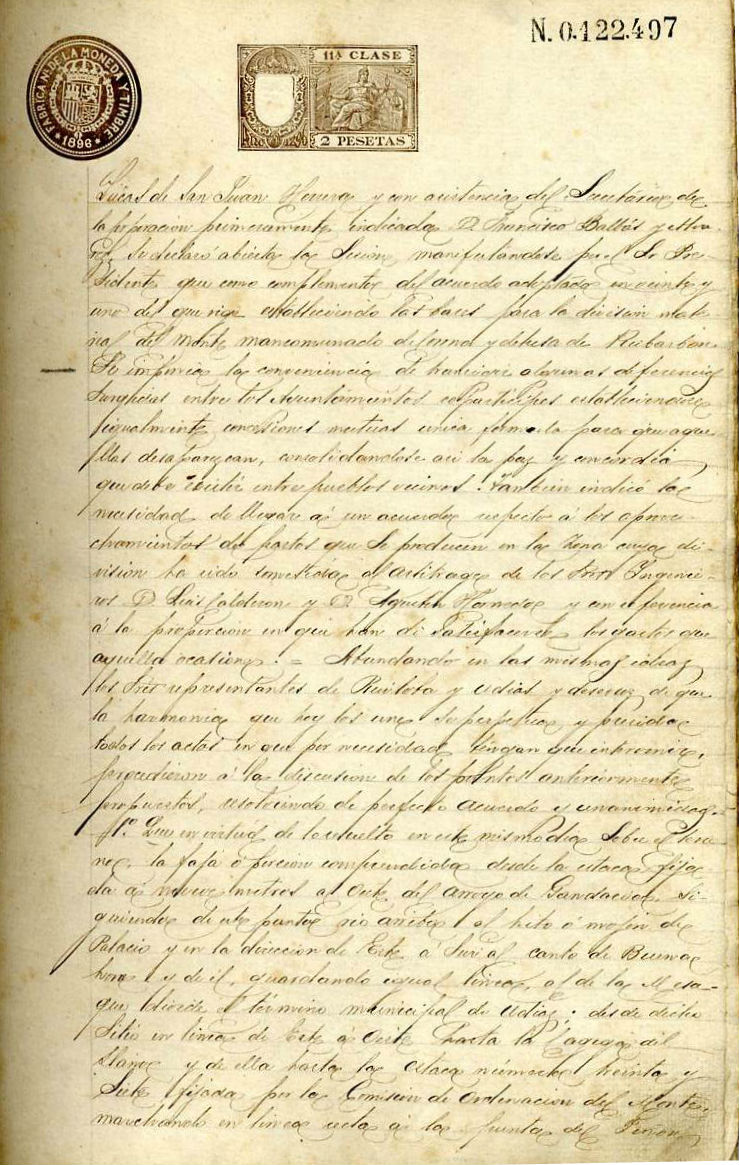 N. 0.122.497
FABRICA N. DE LA MONEDA Y TIMBRE
* 1896 *
11ª CLASE
2 PESETAS
Lucas de San Juan Herrera y con asistencia del Secretario de
la corporación primeramente indicada D. Francisco Ballás y
se declaró abierta la Sesion, manifestandose por el Sr. Pre
sidente que como complemento del acuerdo adoptado en veinte y
uno del que rige estableciendo las bases para la division mate
rial del Monte mancomunado de Corona y dehesa de Rubarbón
se imponia la conveniencia de transigir algunas diferencias
surgidas entre los Ayuntamientos coparticipes estableciendose
igualmente concesiones mutuas unica formula para que aque
llas desaparezcan, consolidandose asi la paz y concordia
que debe existir entre pueblos vecinos: tambien indicó la
necesidad de llegar á un acuerdo respecto á los aprove
chamientos de pastos que se producen en la Zona cuya di
vision ha sido sometida al arbitrage de los Sres Ingenie
ros D. Luis Calderon y D. Agustin Hornedo y con referencia
á la proporcion en que han de satisfacerse los gastos que
aquella ocasione. = Abundando en las mismas ideas
los Sres representantes de Ruiloba y Udias y deseosos de que
la harmonia que hoy los une se perpetue y presida
todos los actos en que por necesidad tengan que intervenir,
procedieron á la discusion de los puntos anteriormente
propuestos, resolviendo de perfecto acuerdo y unanimidad
1º Que en virtud de lo resuelto en este mismo dia sobre el terre
no, la faja ó porcion comprendida desde la estaca fija
da á nueve metros al Oeste del arroyo de Gandarias, si
guiendo de este punto rio arriba al hito ó mojon de
Palacio y en la direccion de Este á Sur al canto de Buena
hora y de él, guardando igual linea, al de la Mesa
que divide el término municipal de Udias; desde dicho
Sitio en linea de Este á Oeste hasta la Cagiga del
Llano y de ella hasta la estaca número treinta y
siete fijada por la Comision de Ordenacion del Monte,
marchando en linea recta á la punta del